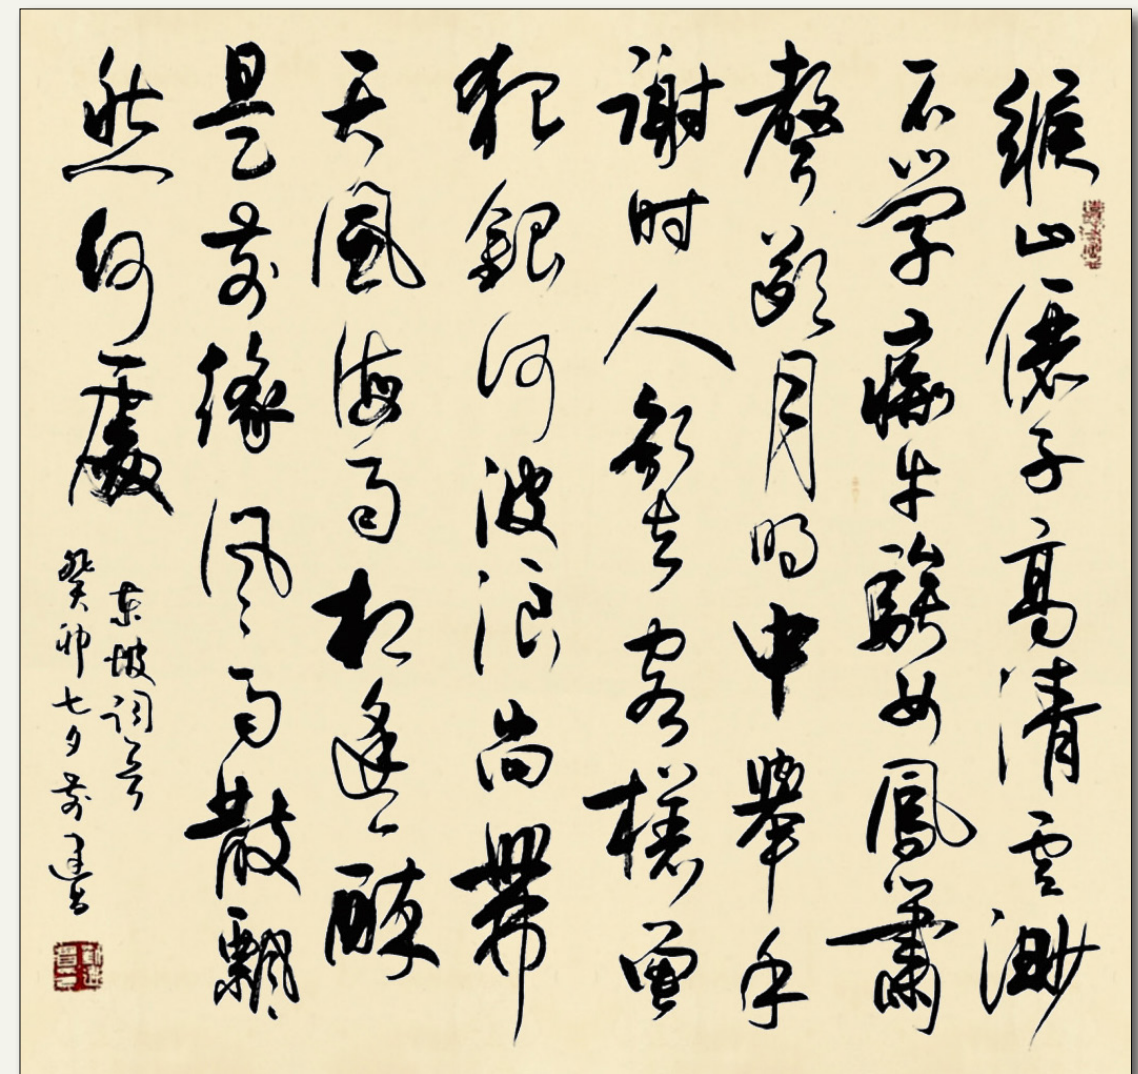 緱山僊子高清雲渺
不學癡牛騃女鳳簫
聲斷月明中舉手
謝时人欲去客槎曾
犯銀河波浪尚帶
天風海雨相逢一醉
是前緣風雨散飄
然何處
東坡詞一首
癸卯七夕前建书